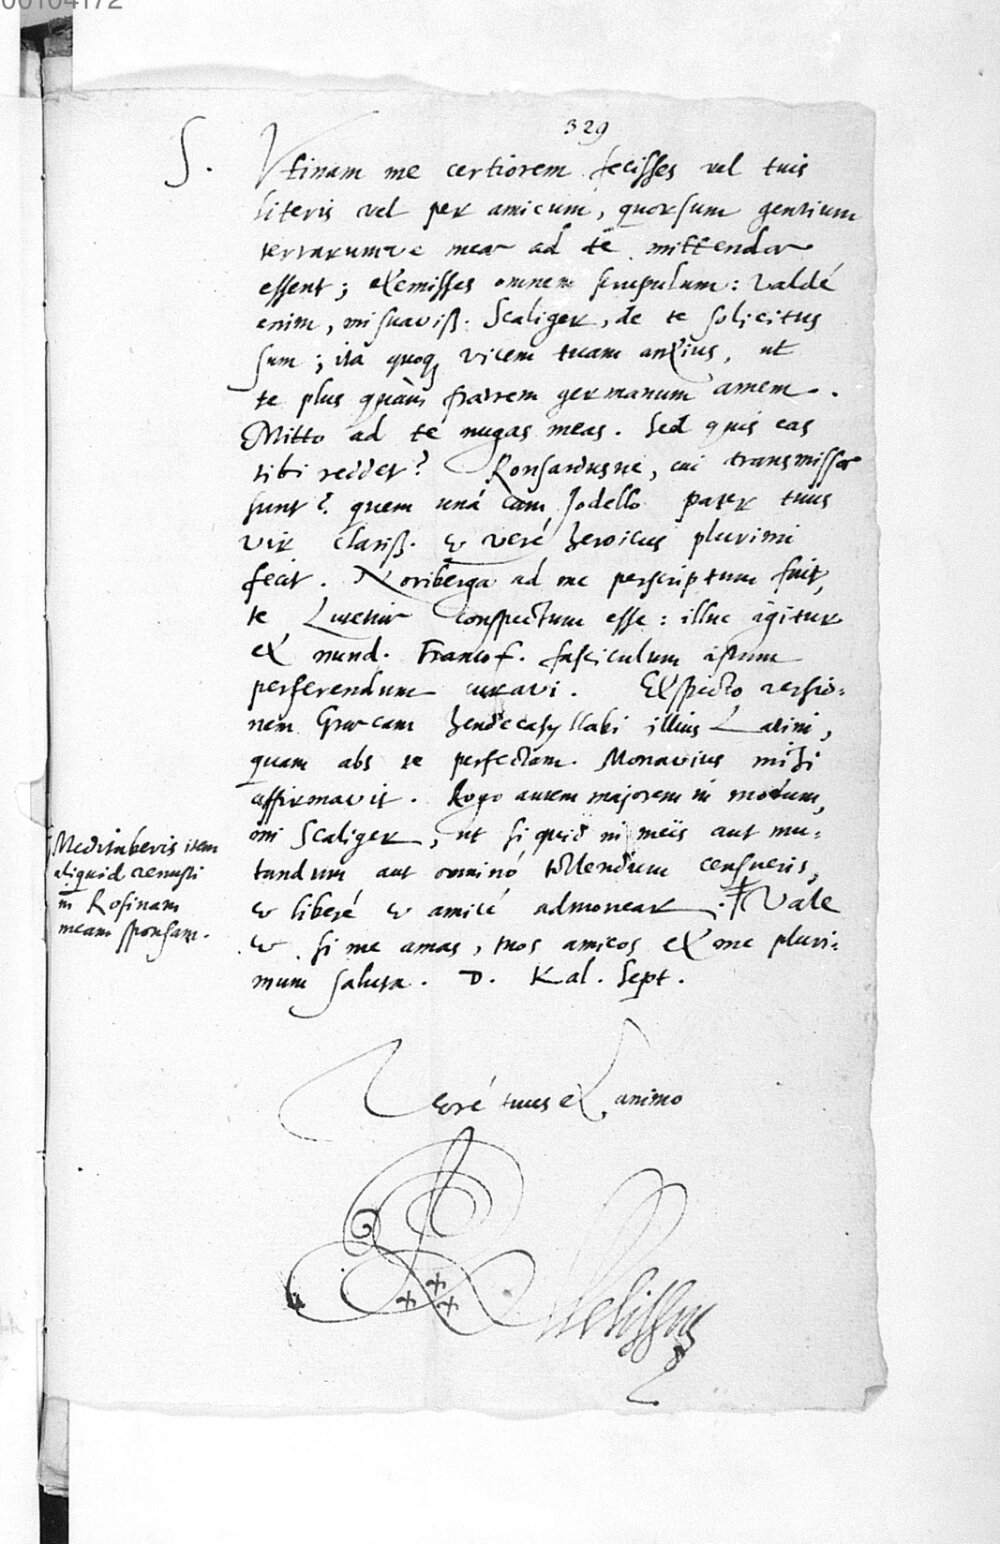 00104172
329
S. Vtinam me certiorem fecisses vel tuis
literis vel per amicum, quorsum gentium
terrarumve meæ ad te mittendæ
essent; exemisses omnem scrupulum: Valdé
enim, mi suaviß. Scaliger, de te solicitus
sum; ita quoq; vicem tuam anxius, ut
te plus quàm fratrem germanum amem.
Mitto ad te nugas meas. Sed quis eas
tibi reddet? Ronsardusne, cui transmissæ
sunt? quem unà cum Jodello pater tuus
vir clariß. & veré heroicus plurimi
fecit. Noriberga ad me perscriptum fuit,
te Lutetiæ conspectum esse: illuc igitur
ex nund. Francof. fasciculum istum
perferendum curavi. Exspecto versio-
nem Græcam hendecasyllabi illius Latini,
quam abs te perfectam Monavius mihi
affirmavit. Rogo autem majorem in modum,
mi Scaliger, ut si quid in meis aut mu-
tandum aut omninó tollendum censueris,
& liberé & amicé admonear. ‡ Vale
& si me amas, tuos amicos ex me pluri-
mum saluta. D. Kal. Sept.
Meditaberis item
aliquid venusti
in Rosinam
meam sponsam.
Veré tuus ex animo
Melissus